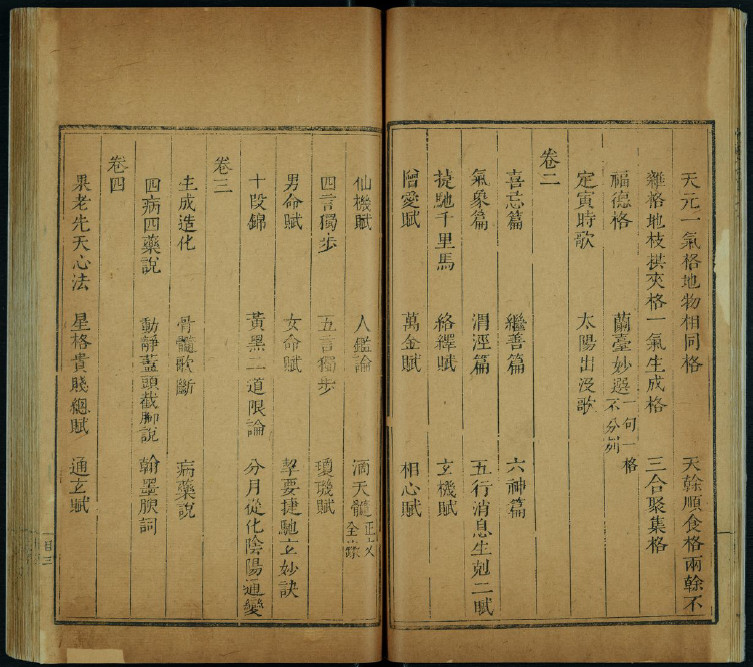 天元一氣格地物相同格 天幹順食格兩幹不
雜格地枝拱夾格一氣生成格 三合聚集格
福德格 蘭臺妙選一句一格不分列
定寅時歌 太陽出沒歌
卷二
喜忌篇 繼善篇 六神篇
氣象篇 渭涇篇 五行消息生剋二賦
捷馳千里馬 絡繹賦 玄機賦
憎愛賦 萬金賦 相心賦
仙機賦 人鑑論 滴天髓正文全錄
四言獨步 五言獨步 瓊璣賦
男命賦 女命賦 挈要捷馳玄妙訣
十段錦 黃黑二道限論 分月從化陰陽通變
卷三
生成造化 骨髓歌斷 病藥說
四病四藥說 動靜蓋頭截脚說 翰墨腴詞
卷四
果老先天心法 星格貴賤總賦 通玄賦